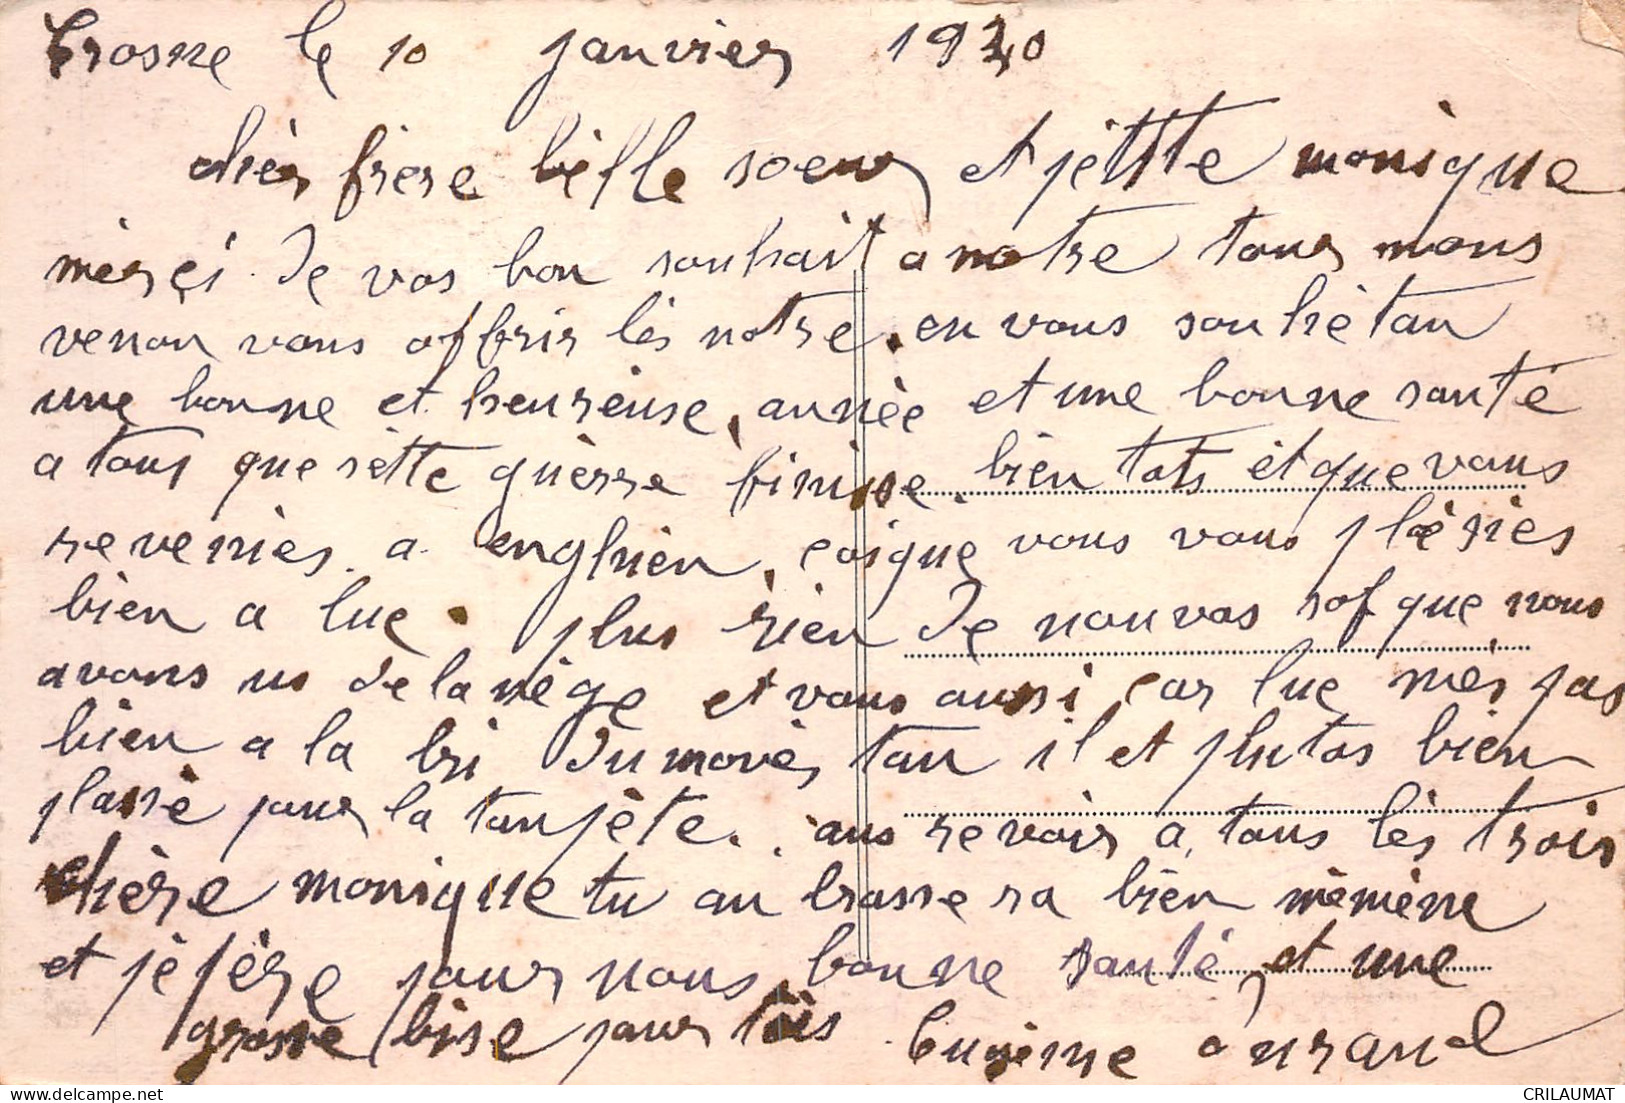 Crosne le 10 janvier 1940
chèr frère bèlle soeur et pètite monique
mèrçi. Je vos bon souhait a notre tour nous
venon vous offrir lès notre. en vous souhètan
une bonne et heurèuse, annèe et une bonne santé
a tous que sètte guèrre finisse. bien tots èt que vous
reveniès. a enghièn, coique vous vous plèsies
bien a luc. plus rien Je nouvos sof que nous
avons us de la nège et vous aussi car luc nnès pas
bien a la bri Du movès tan il et plutos bièn
plassè pour la tanpète. aus revoir a, tous lès trois
chère monique tu anbrassera bièn mèmène
et pèpère pour nous, bonne santé, et une
grosse bise pour toès Eugène Durand
CRILAUMAT